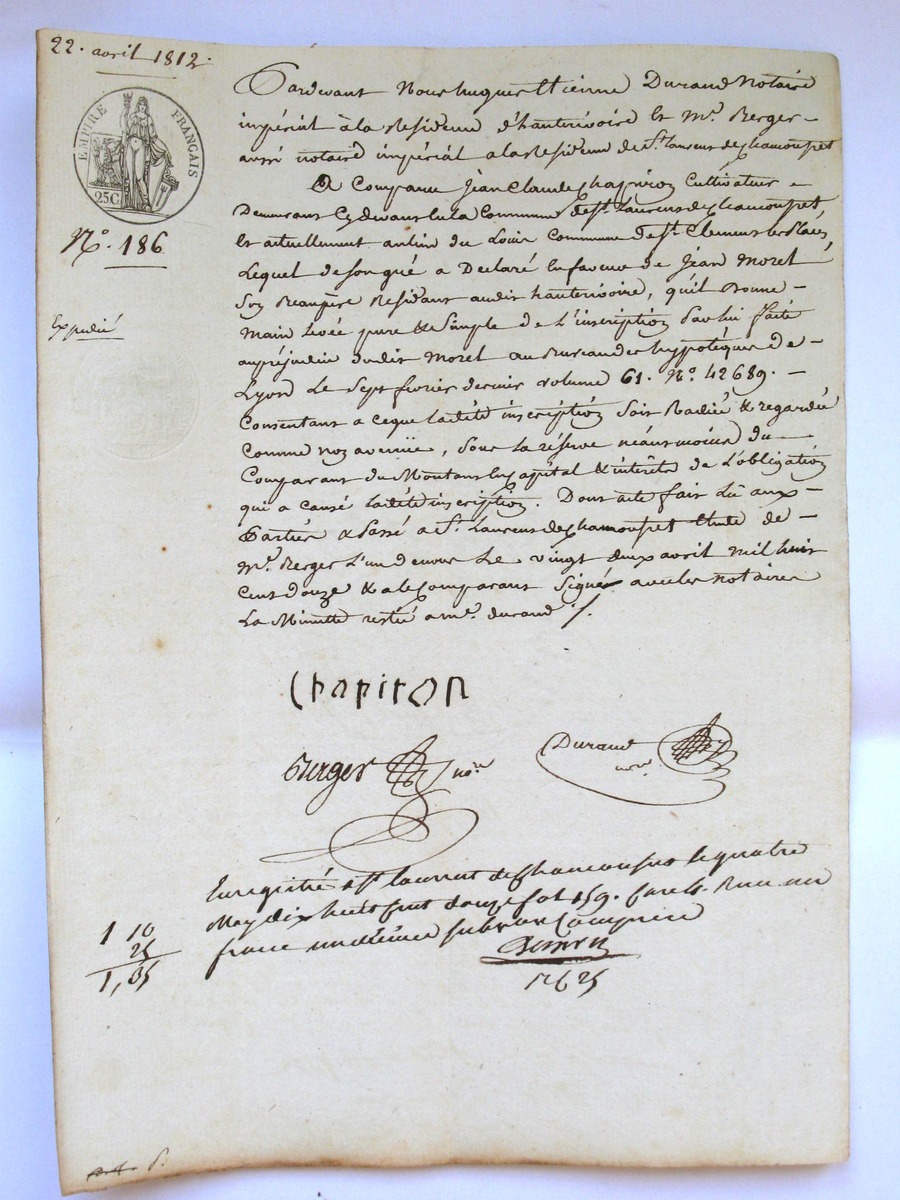 22. avril 1812.
EMPIRE FRANÇAIS
25C
N°. 186
Expedié
Pardevant Nous hugues Etienne Durand Notaire
impérial à la Residence d'hauterivoire Et Me. Berger
aussi notaire impérial a la Residence de St. Laurent de Chamousset
A Comparu Jean Claude Chapiron Cultivateur
Demeurant Cydevant en la Commune de St. Laurent de Chamousset
Et actuellement au lieu du Commune de St. Clement les Places,
Lequel de son gré a Declaré En faveur de Jean Moret
Son Beaupère Residant audit hauterivoire, qu'il Donne
Main Levée pure & Simple de L'inscription Par lui faite
au préjudice dudit Moret au Bureau des hypotèques de
Lyon Le Sept fevrier dernier volume 61. N°. 42689.
Consentant a ceque ladite inscription Soit Radiée & regardée
Comme non avenüe, Sous la réserve néanmoins du
Comparant du Montant En Capital & intérêts de L'obligation
qui a causé ladite inscription. Dont acte fait Lû aux
Parties & Passé a St. Laurent de Chamousset Etude de
Me. Berger L'un de nous Le vingt deux avril mil huit
Cent douze & a le Comparant Signé avec les notaires
La Minutte restée a me. durand ./.
Chapiron
Berger nore
Durand nore.
Enregistré a St. laurent de Chamousset le quatre
May dix huit cent douze fol 159. Reçu un
franc un décime subvon Comprise
1 10
25
1,35